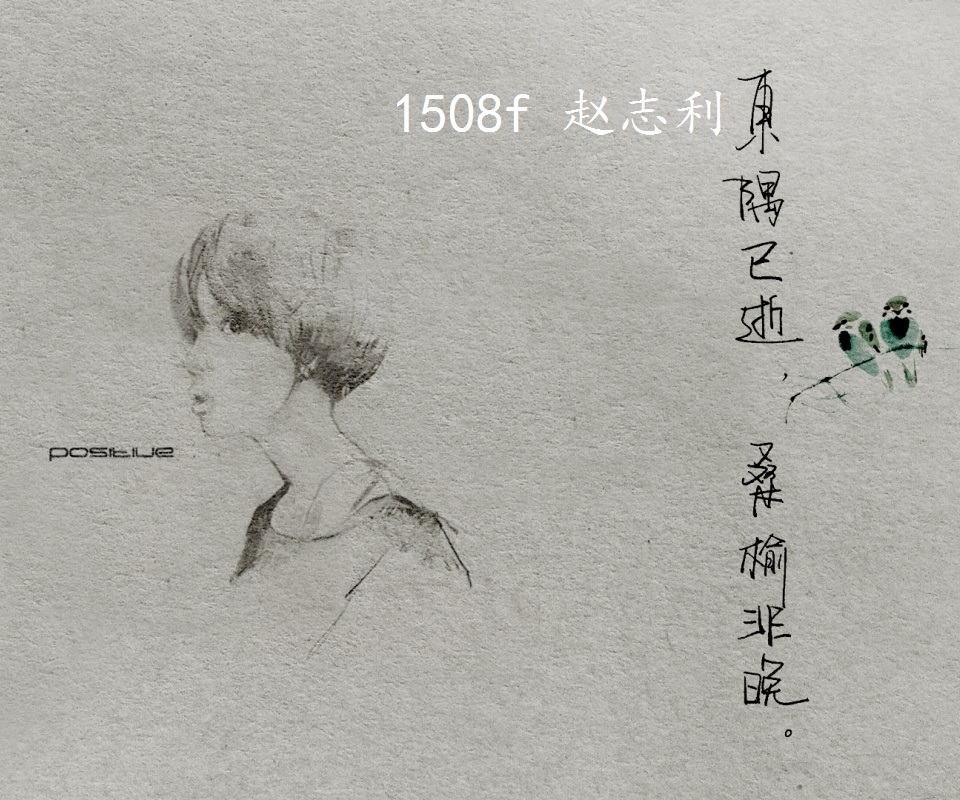 1508f 赵志利
東隅已逝，
桑榆非晚。
positive